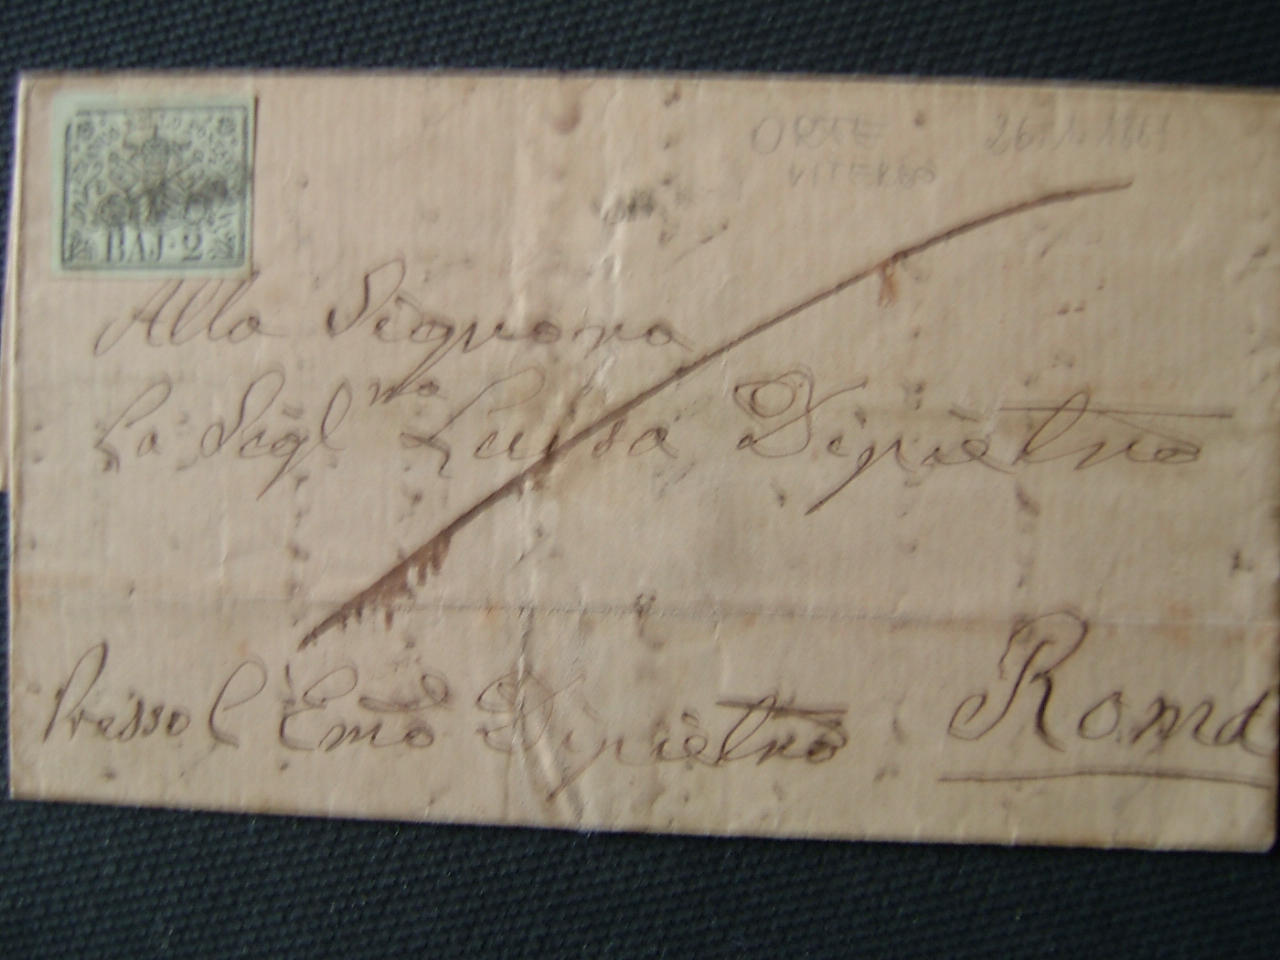 ORTE
VITERBO
BAJ·2
Alla Signora
La Sigl^ma Luisa Dipietro
Presso l Emo Dipietro
Roma